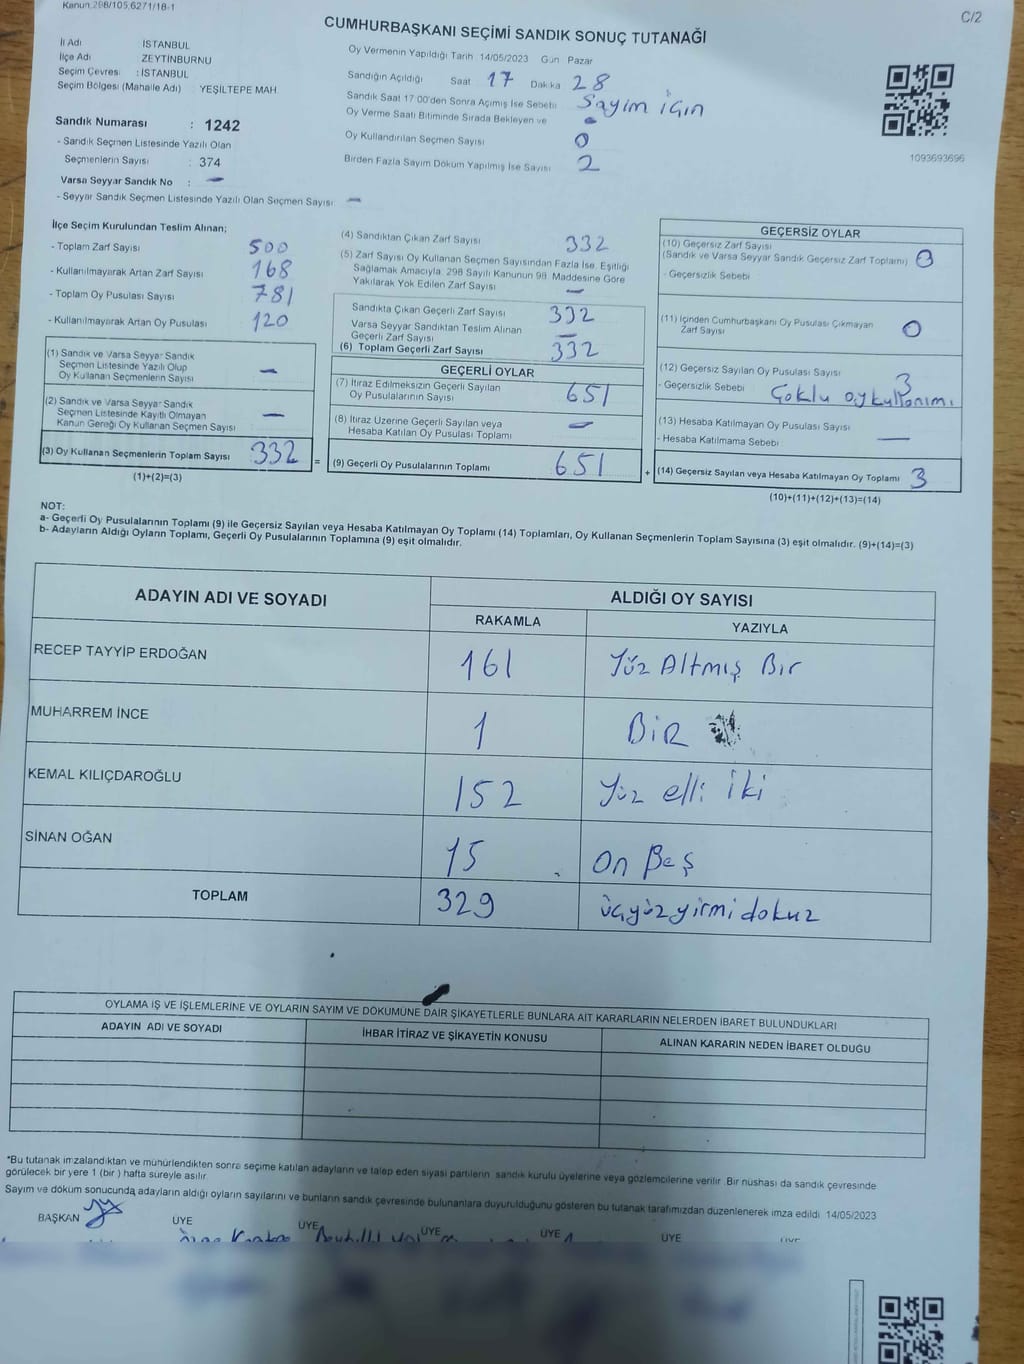 Kanun 298/105,6271/18-1
C/2
CUMHURBAŞKANI SEÇİMİ SANDIK SONUÇ TUTANAĞI
İl Adı İSTANBUL
İlçe Adı ZEYTİNBURNU
Seçim Çevresi : İSTANBUL
Seçim Bölgesi (Mahalle Adı) YEŞİLTEPE MAH.
Sandık Numarası : 1242
- Sandık Seçmen Listesinde Yazılı Olan
Seçmenlerin Sayısı : 374
Varsa Seyyar Sandık No : –
- Seyyar Sandık Seçmen Listesinde Yazılı Olan Seçmen Sayısı –
Oy Vermenin Yapıldığı Tarih 14/05/2023 Gün Pazar
Sandığın Açıldığı Saat 17 Dakika 28
Sandık Saat 17:00'den Sonra Açımış İse Sebebi Sayım için
Oy Verme Saati Bitiminde Sırada Bekleyen ve
Oy Kullandırılan Seçmen Sayısı 0
Birden Fazla Sayım Döküm Yapılmış İse Sayısı 2
1093693696
İlçe Seçim Kurulundan Teslim Alınan;
- Toplam Zarf Sayısı 500
- Kullanılmayarak Artan Zarf Sayısı 168
- Toplam Oy Pusulası Sayısı 781
- Kullanılmayarak Artan Oy Pusulası 120
(1) Sandık ve Varsa Seyyar Sandık
Seçmen Listesinde Yazılı Olup
Oy Kullanan Seçmenlerin Sayısı –
(2) Sandık ve Varsa Seyyar Sandık
Seçmen Listesinde Kayıtlı Olmayan
Kanun Gereği Oy Kullanan Seçmen Sayısı –
(3) Oy Kullanan Seçmenlerin Toplam Sayısı 332
(1)+(2)=(3)
=
(4) Sandıktan Çıkan Zarf Sayısı 332
(5) Zarf Sayısı Oy Kullanan Seçmen Sayısından Fazla İse, Eşitliği
Sağlamak Amacıyla, 298 Sayılı Kanunun 98. Maddesine Göre
Yakılarak Yok Edilen Zarf Sayısı –
Sandıkta Çıkan Geçerli Zarf Sayısı 332
Varsa Seyyar Sandıktan Teslim Alınan
Geçerli Zarf Sayısı –
(6) Toplam Geçerli Zarf Sayısı 332
GEÇERLİ OYLAR
(7) İtiraz Edilmeksizin Geçerli Sayılan
Oy Pusulalarının Sayısı 651
(8) İtiraz Üzerine Geçerli Sayılan veya
Hesaba Katılan Oy Pusulası Toplamı –
(9) Geçerli Oy Pusulalarının Toplamı 651
+
GEÇERSİZ OYLAR
(10) Geçersiz Zarf Sayısı
(Sandık ve Varsa Seyyar Sandık Geçersiz Zarf Toplamı)
- Geçersizlik Sebebi
(11) İçinden Cumhurbaşkanı Oy Pusulası Çıkmayan
Zarf Sayısı 0
(12) Geçersiz Sayılan Oy Pusulası Sayısı 3
- Geçersizlik Sebebi Çoklu oy kullanımı
(13) Hesaba Katılmayan Oy Pusulası Sayısı
- Hesaba Katılmama Sebebi –
(14) Geçersiz Sayılan veya Hesaba Katılmayan Oy Toplamı 3
(10)+(11)+(12)+(13)=(14)
NOT:
a- Geçerli Oy Pusulalarının Toplamı (9) ile Geçersiz Sayılan veya Hesaba Katılmayan Oy Toplamı (14) Toplamları, Oy Kullanan Seçmenlerin Toplam Sayısına (3) eşit olmalıdır. (9)+(14)=(3)
b- Adayların Aldığı Oyların Toplamı, Geçerli Oy Pusulalarının Toplamına (9) eşit olmalıdır.
ADAYIN ADI VE SOYADI
ALDIĞI OY SAYISI
RAKAMLA YAZIYLA
RECEP TAYYİP ERDOĞAN 161 Yüz Altmış Bir
MUHARREM İNCE 1 BİR
KEMAL KILIÇDAROĞLU 152 Yüz elli iki
SİNAN OĞAN 15 On Beş
TOPLAM 329 üçyüzyirmi dokuz
OYLAMA İŞ VE İŞLEMLERİNE VE OYLARIN SAYIM VE DÖKÜMÜNE DAİR ŞİKAYETLERLE BUNLARA AİT KARARLARIN NELERDEN İBARET BULUNDUKLARI
ADAYIN ADI VE SOYADI İHBAR İTİRAZ VE ŞİKAYETİN KONUSU ALINAN KARARIN NEDEN İBARET OLDUĞU
*Bu tutanak imzalandıktan ve mühürlendikten sonra seçime katılan adayların ve talep eden siyasi partilerin sandık kurulu üyelerine veya gözlemcilerine verilir. Bir nüshası da sandık çevresinde
görülecek bir yere 1 (bir) hafta süreyle asılır.
Sayım ve döküm sonucunda adayların aldığı oyların sayılarını ve bunların sandık çevresinde bulunanlara duyurulduğunu gösteren bu tutanak tarafımızdan düzenlenerek imza edildi. 14/05/2023
BAŞKAN ÜYE ÜYE ÜYE ÜYE ÜYE